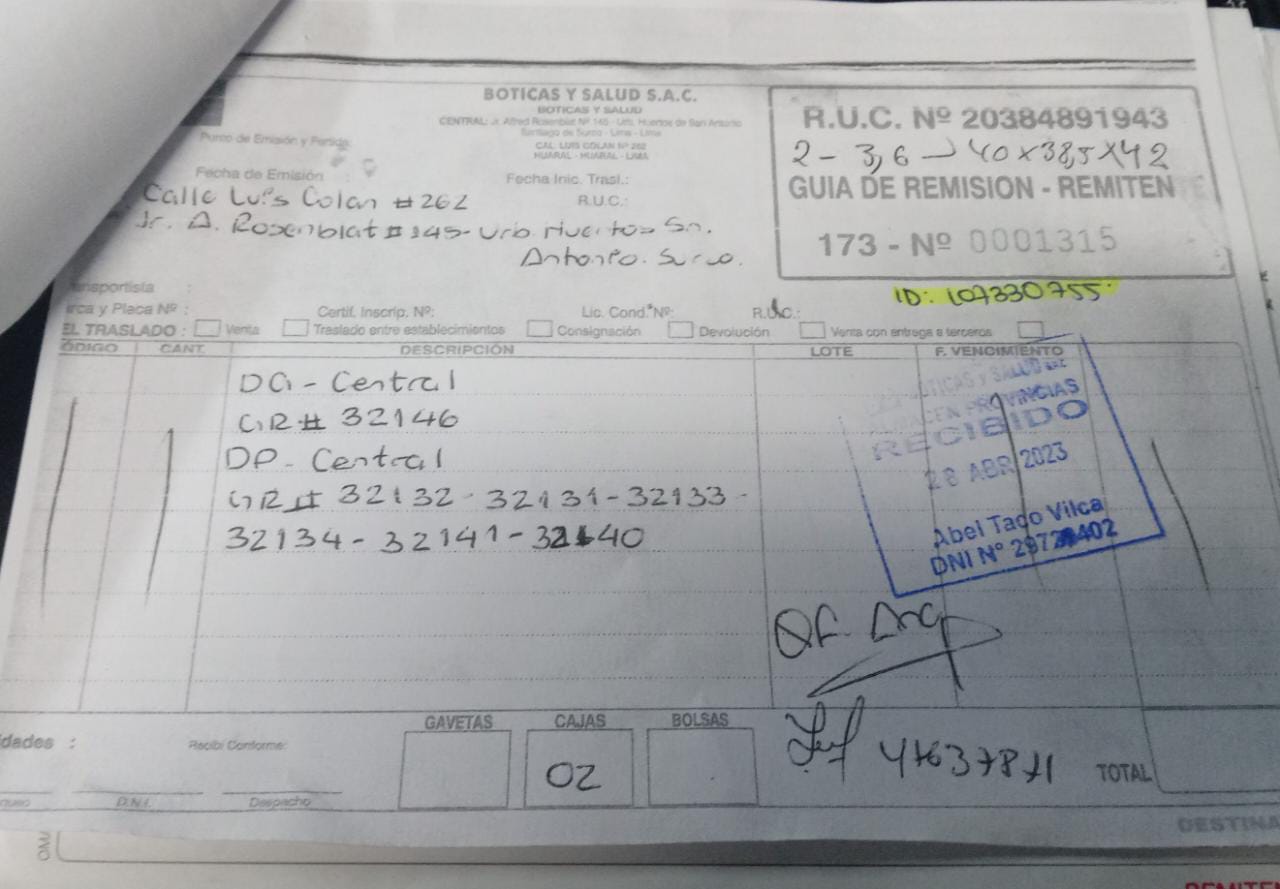 BOTICAS Y SALUD S.A.C.
BOTICAS Y SALUD
CENTRAL: Jr. Alfred Rosenblat Nº 145 - Urb. Huertos de San Antonio
Santiago de Surco - Lima - Lima
CAL. LUIS COLAN Nº 262
HUARAL - HUARAL - LIMA
R.U.C. Nº 20384891943
2 - 3,6 → 40x38,5x42
GUIA DE REMISION - REMITENTE
173 - Nº 0001315
ID: 107330755
Punto de Emisión y Partida:
Fecha de Emisión :
Fecha Inic. Trasl.:
Calle Luis Colan #262
R.U.C.:
Jr. A. Rosenblat #145- Urb Huertos Sn.
Antonio. Surco.
ansportista :
arca y Placa Nº :
Certif. Inscrip. Nº:
Lic. Cond. Nº:
R.U.C.:
EL TRASLADO : Venta Traslado entre establecimientos Consignación Devolución Venta con entrega a terceros
ÓDIGO CANT. DESCRIPCIÓN LOTE F. VENCIMIENTO
DG - Central
GR# 32146
DP - Central
GR# 32132 - 32131 - 32133 -
32134 - 32141 - 32140
BOTICAS Y SALUD SAC
ALMACEN PROVINCIAS
RECIBIDO
28 ABR 2023
Abel Taco Vilca
DNI Nº 402
QF.
41637871
GAVETAS CAJAS BOLSAS
02
TOTAL
idades :
Recibí Conforme:
D.N.I.
Despacho
DESTINA
REMITEN